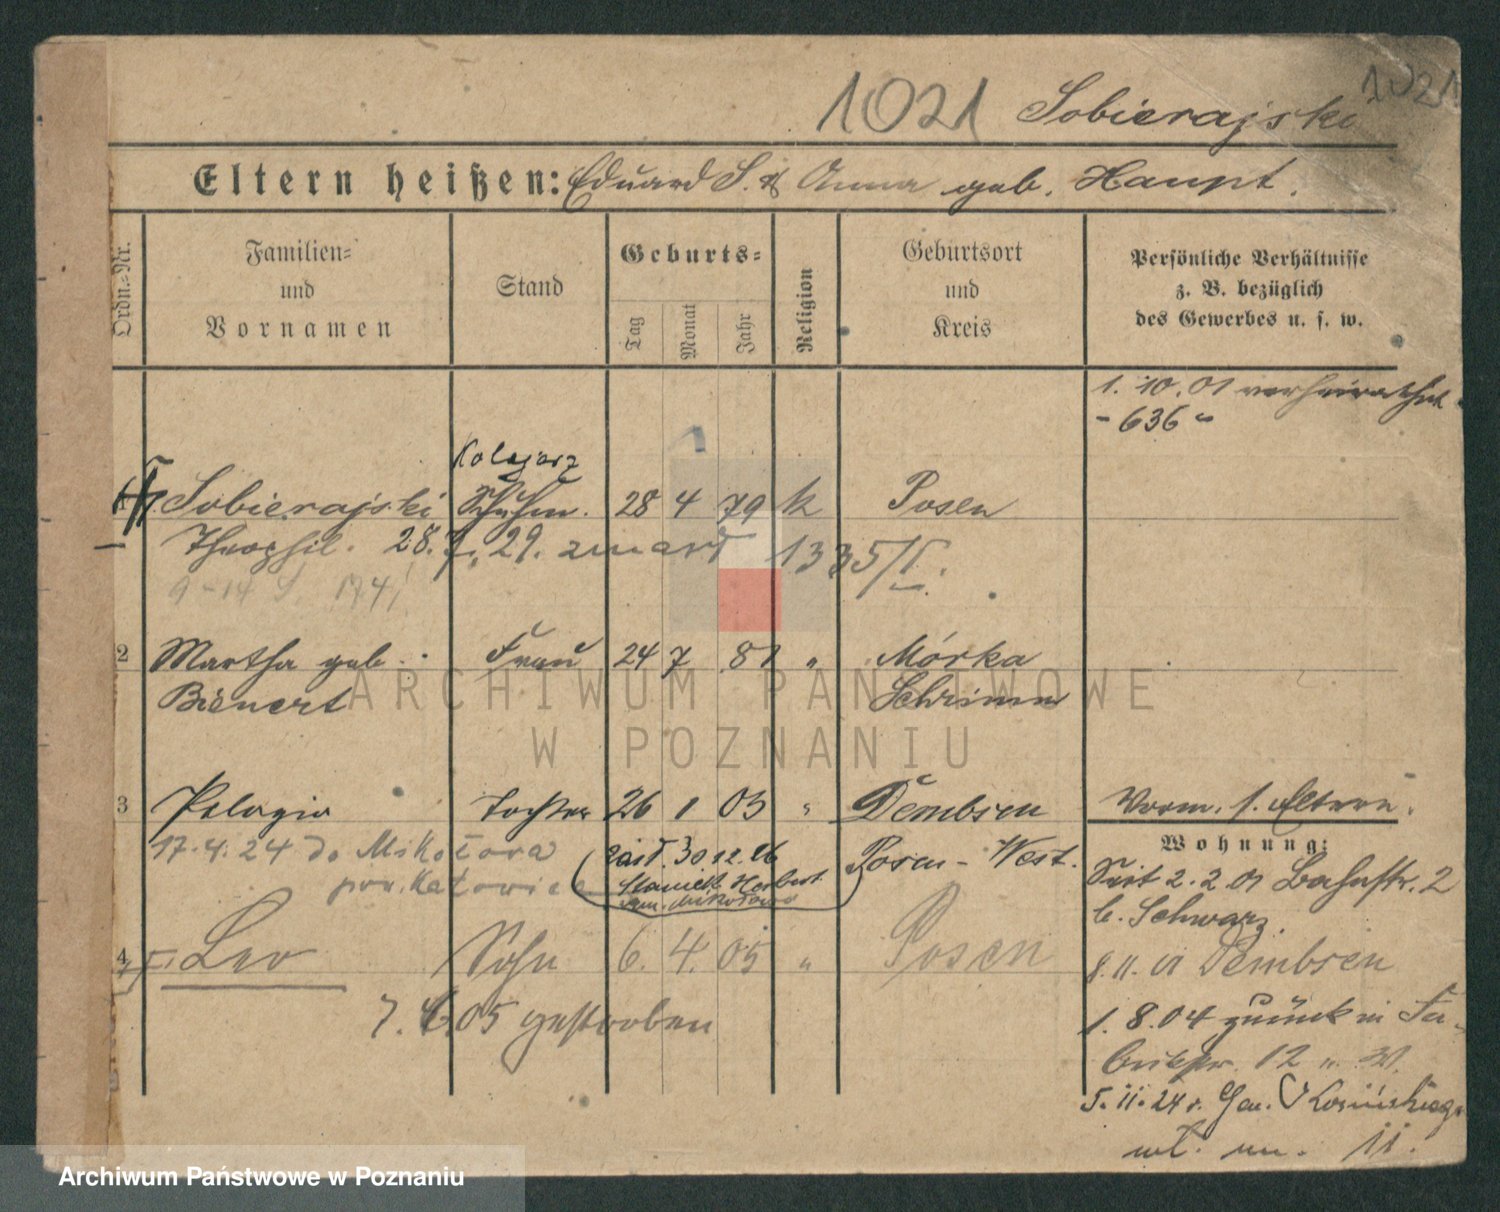 1021 Sobierajski 1021
Eltern heißen: Eduard S. & Anna geb. Haupt.
Ordn.-Nr.
Familien- und Vornamen
Stand
Geburts-
Tag Monat Jahr
Religion
Geburtsort und Kreis
Persönliche Verhältnisse
z. B. bezüglich
des Gewerbes u. s. w.
1. 10. 01 verheirathet
- 636 -
Kolejarz
1 Sobierajski Schuhm. 28 4 79 k Posen
Theophil. 28. 7. 29. zmarł 1335/I.
2 Martha geb. Frau 24 7 81 " Mórka
Bienert Schrimm
3 Pelagia Tochter 26 1 03 " Dembsen
Vorm. s. Eltern.
17.4.24 do Mikołowa
Posen-West.
pow. Katowice
30 12 26
Wohnung:
Seit 2.2.01 Bahnstr. 2
b. Schwarz.
4 Leo Sohn 6. 4. 05 " Posen
8.11.01 Dembsen
7. 6 05 gestorben
1. 8.04 zurück in Fa-
brikstr. 12
5. 11. 24 r. Gen. Kosińskiego
11.
ARCHIWUM PAŃSTWOWE
W POZNANIU
Archiwum Państwowe w Poznaniu